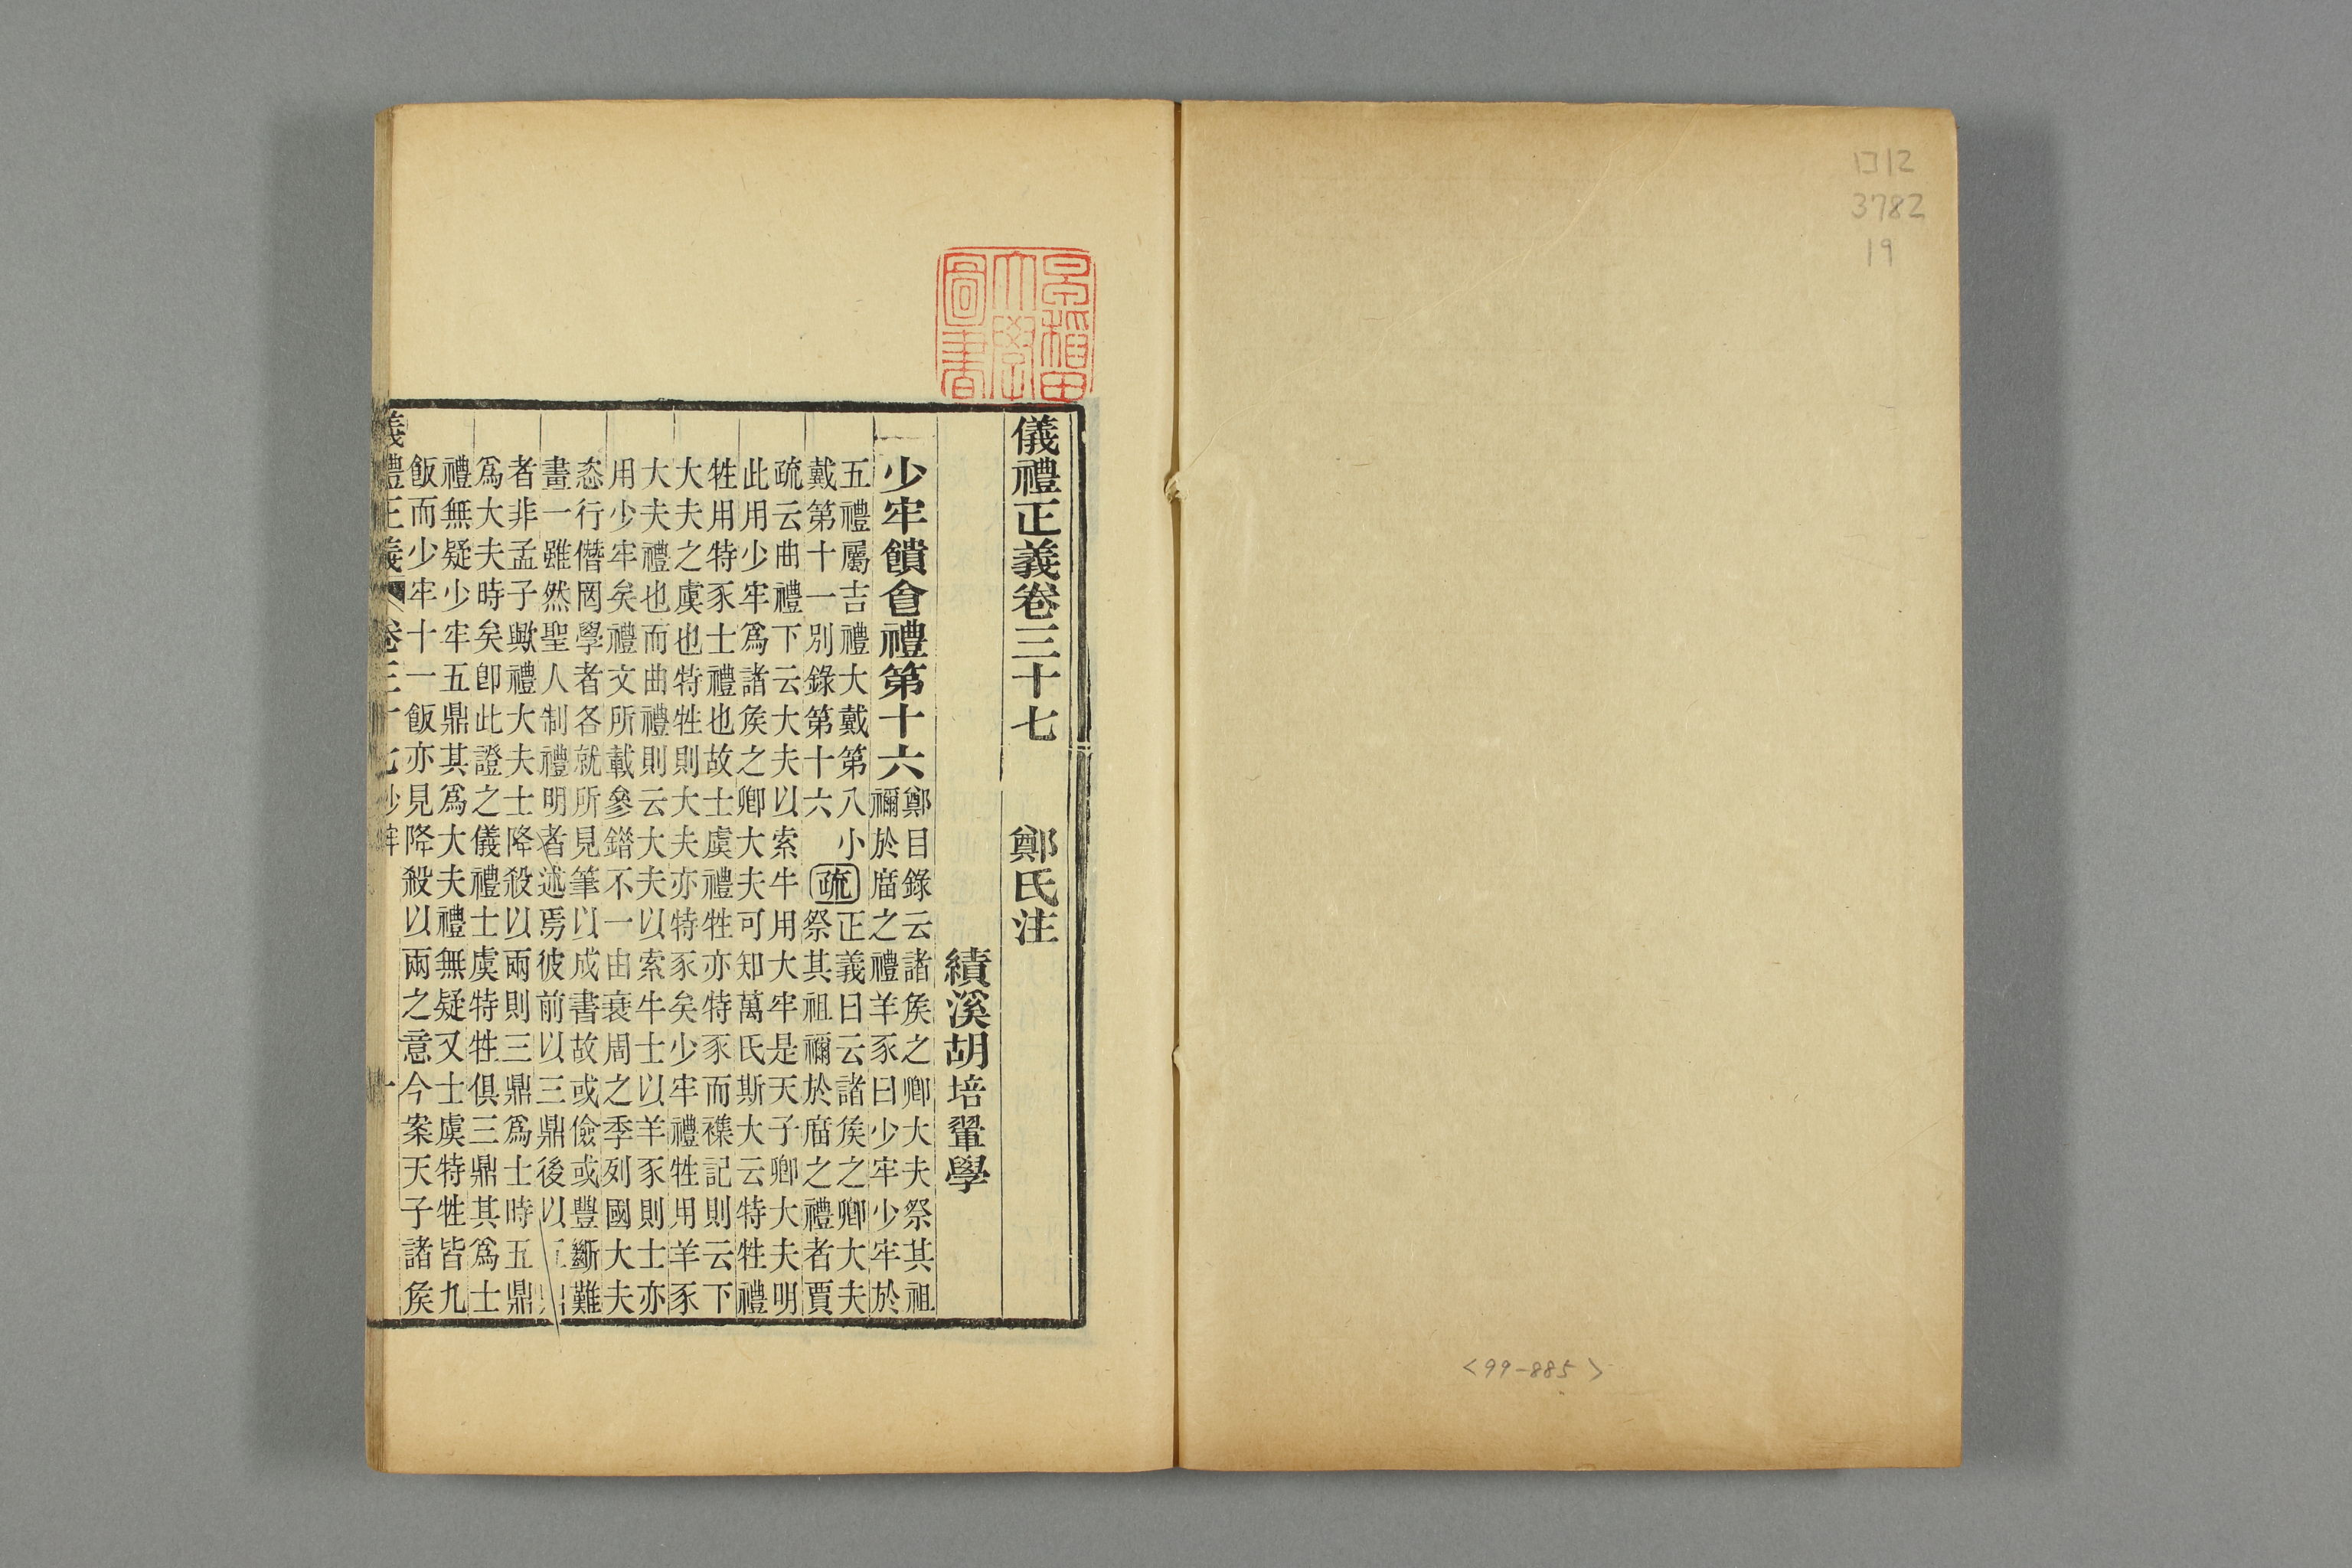 ロ12
3782
19
<99-885>
早稲田大學圖書
儀禮正義卷三十七　鄭氏注
績溪胡培翬學
少牢饋食禮第十六
鄭目錄云諸矦之卿大夫祭其祖
禰於庿之禮羊豕曰少牢少牢於
五禮屬吉禮大戴第八小
戴第十一別錄第十六
疏
正義曰云諸矦之卿大夫
祭其祖禰於庿之禮者賈
疏云曲禮下云大夫以索牛用大牢是天子卿大夫明
此用少牢爲諸矦之卿大夫可知萬氏斯大云特牲禮
牲用特豕士禮也故士虞禮牲亦特豕而襍記則云下
大夫之虞也特牲則大夫亦特豕矣少牢禮牲用羊豕
大夫禮也而曲禮則云大夫以索牛士以羊豕則士亦
用少牢矣禮文所載參錯不一由衰周之季列國大夫
恣行僭罔學者各就所見筆以成書故或儉或豐斷難
畫一雖然聖人制禮明者述焉彼前以三鼎後以
者非孟子歟禮大夫士降殺以兩則三鼎爲士時五鼎
爲大夫時矣卽此證之儀禮士虞特牲俱三鼎其爲士
禮無疑少牢五鼎其爲大夫禮無疑又士虞特牲皆九
飯而少牢十一飯亦見降殺以兩之意今案天子諸矦
儀禮正義　卷三十七　一